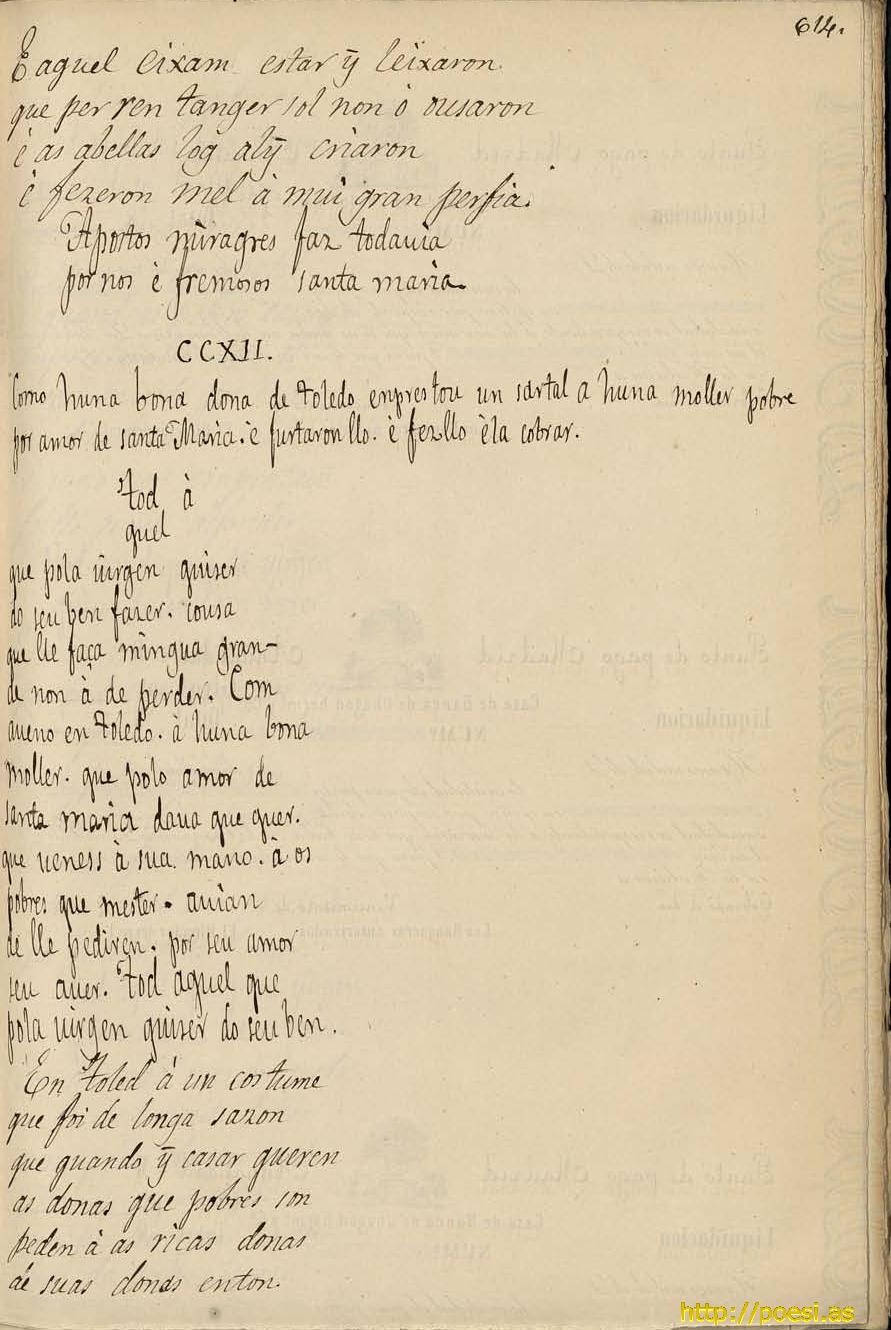 614.
E aquel eixam estar ȳ leixaron
que per ren tanger sol non ò ousaron
è as abellas log alȳ criaron
è fezeron mel à mui gran perfia.
Apostos miragres faz todauia
por nos è fremosos santa maria.
CCXII.
Como huna bona dona de toledo enprestou un sartal a huna moller pobre
por amor de santa Maria. è furtaronllo. è fezllo èla cobrar.
tod à
quel
que pola uirgen quiser
do seu ben fazer. cousa
que lle faça mingua gran-
de non à de perder. Com
aueno en toledo. à huna bona
moller. que polo amor de
santa maria daua que quer.
que ueness à sua mano. à os
pobres que mester. auian
de lle pediren. por seu amor
seu auer. Tod aquel que
pola uirgen quiser do seu ben.
En Toled à un costume
que foi de longa sazon
que quando ȳ casar queren
as donas que pobres son
peden à as ricas donas
de suas donas enton.
http://poesi.as